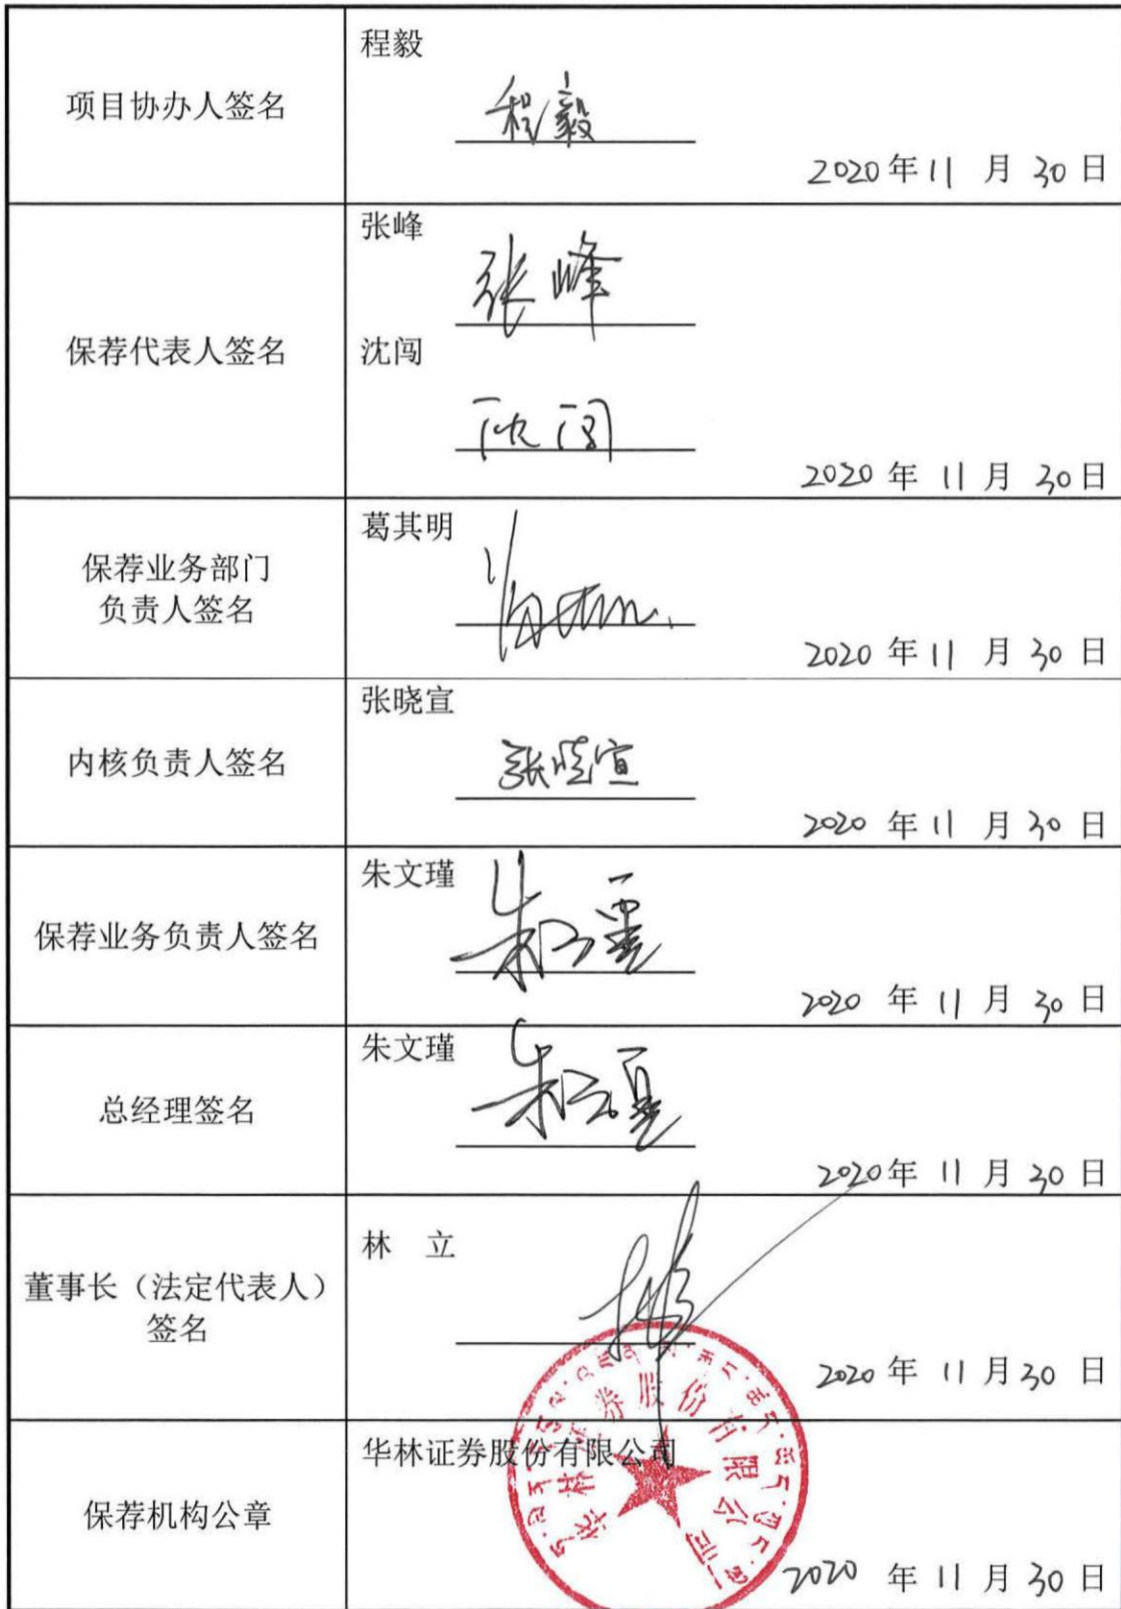 项目协办人签名
程毅
程毅
2020年11 月 30 日
保荐代表人签名
张峰
张峰
沈闯
沈闯
2020 年 11 月 30日
保荐业务部门
负责人签名
葛其明
2020 年 11 月 30 日
内核负责人签名
张晓宣
张晓宣
2020 年 11 月 30 日
保荐业务负责人签名
朱文瑾
朱文瑾
2020 年 11 月 30日
总经理签名
朱文瑾
朱文瑾
2020年 11 月 30 日
董事长（法定代表人）
签名
林 立
2020 年 11 月 30 日
保荐机构公章
华林证券股份有限公司
华林证券股份有限公司
2020 年 11 月 30 日